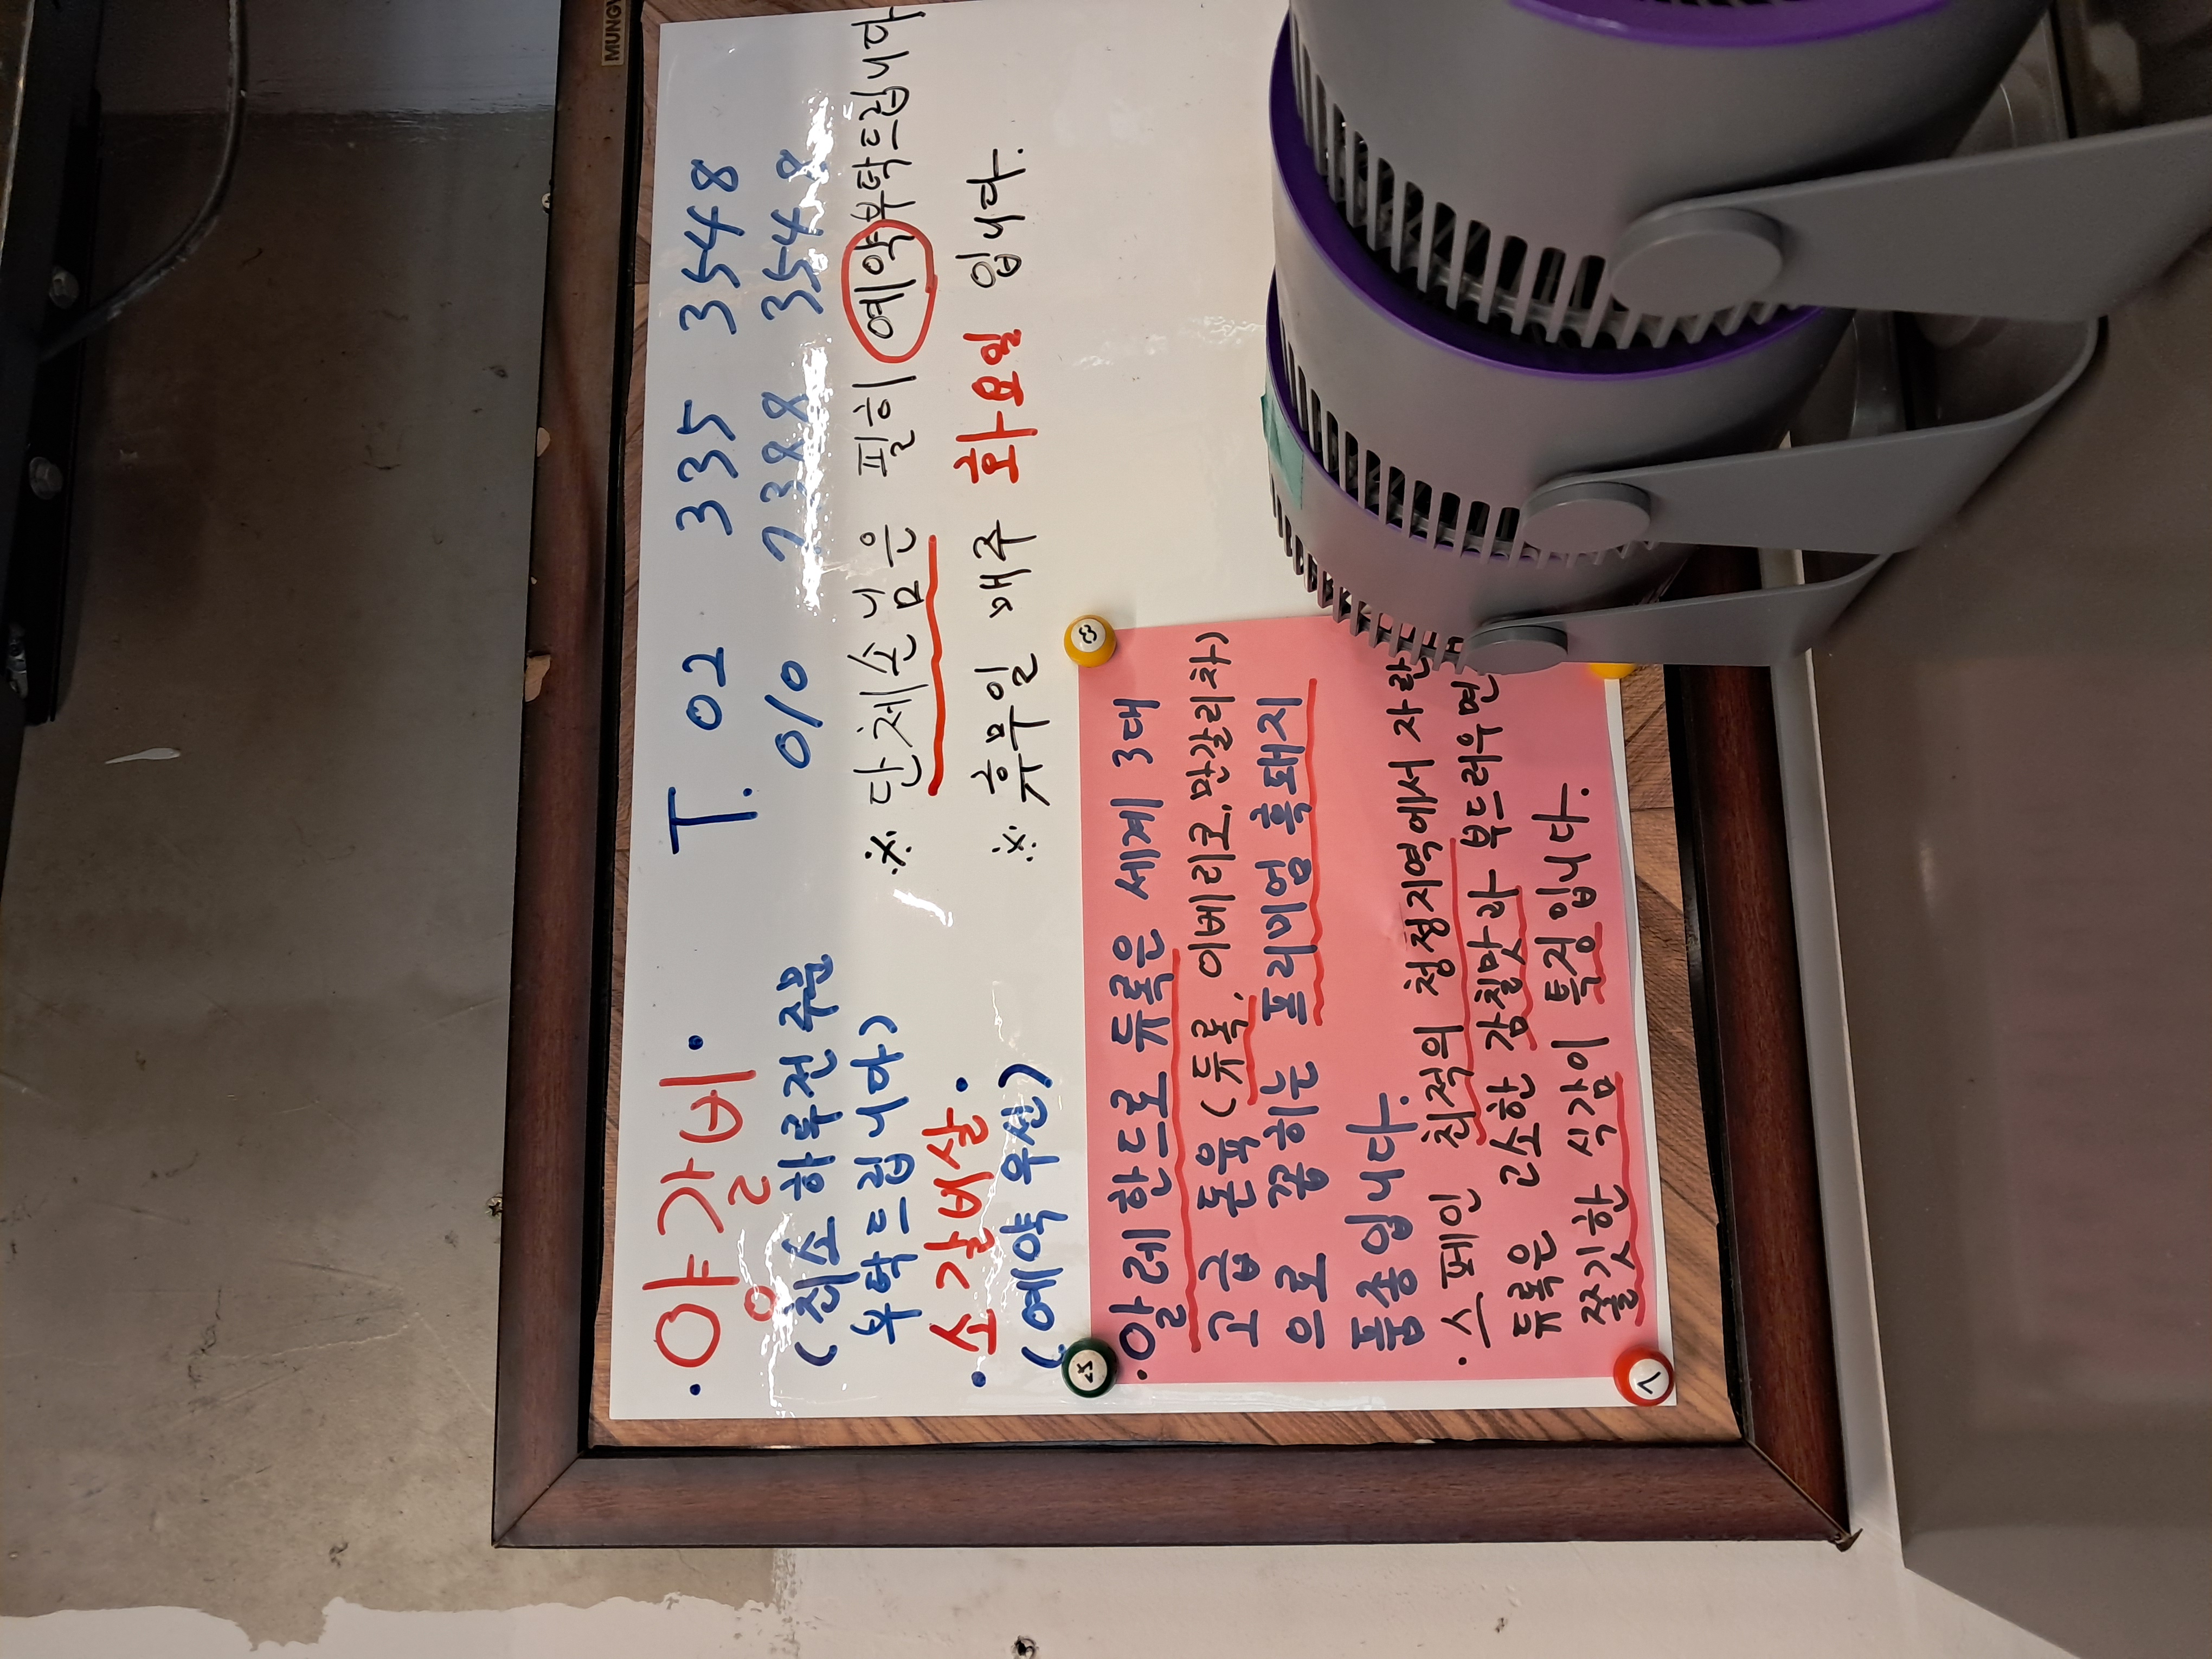 MUNGV
• 양갈비 •
(최소 하루전 주문
부탁드립니다)
• 소갈비살 •
(예약 우선)
T. 02 335 3548
010 7388 3548
※ 단체손님은 필히 예약부탁드립니다
※ 휴무일 매주 화요일 입니다.
• 알레한드로 듀록은 세계 3대
고급 돈육 (듀록, 이베리코, 만갈리차)
으로 꼽히는 프리미엄 흑돼지
품종입니다.
• 스페인 최적의 청정지역에서 자란
듀록은 고소한 감칠맛과 부드러우면
쫄깃한 식감이 특징입니다.
8
7